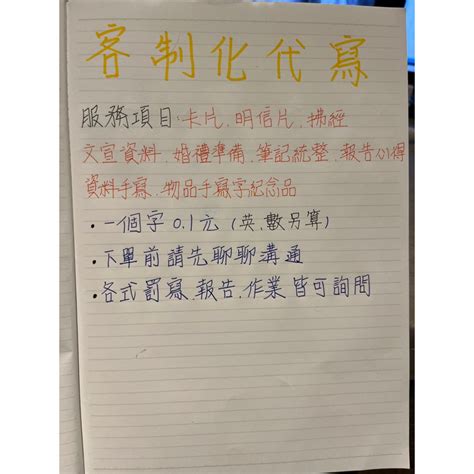 客制化代寫
服務項目:卡片.明信片.拂經
文宣資料.婚禮準備.筆記統整.報告心得
資料手寫.物品手寫字紀念品
•一個字 0.1元 (英.數另算)
•下單前請先聊聊溝通
•各式罰寫.報告.作業皆可詢問